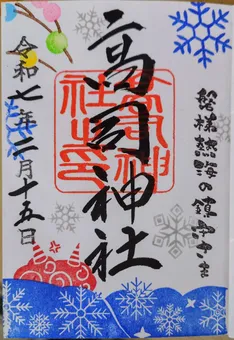 磐梯熱海の鎮守さま
高司神社
高司神社之印
令和七年二月十五日